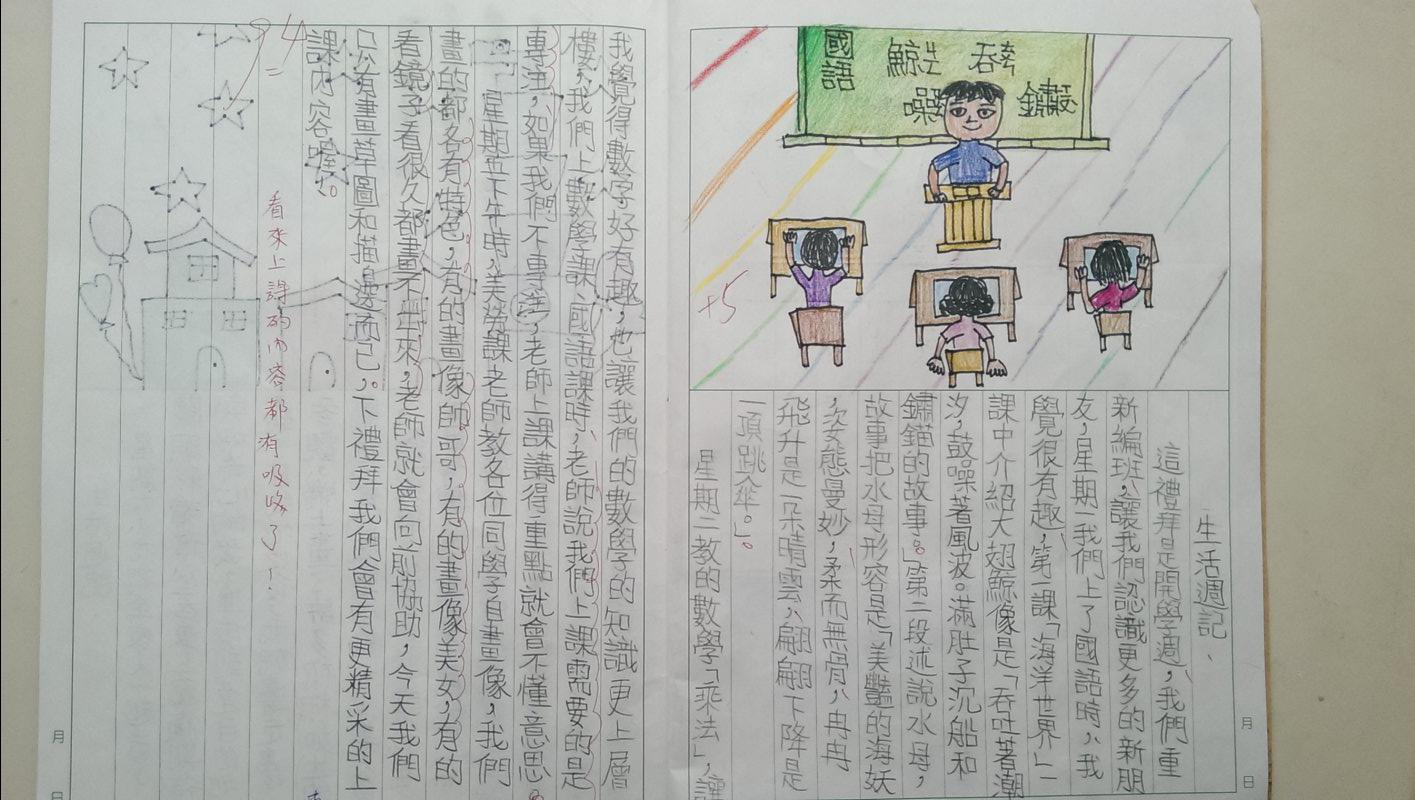 國語
鯨
吞
噪
鏽
+5
生活週記
這禮拜是開學週,我們重
新編班,讓我們認識更多的新朋
友,星期一我們上了國語時,我
覺很有趣,第一課「海洋世界」一
課中介紹大翅鯨像是「吞吐著潮
汐,鼓噪著風波。滿肚子沉船和
鏽錨的故事。」第二段述說水母,
故事把水母形容是「美豔的海妖
,姿態曼妙,柔而無骨,冉冉
飛升是一朵晴雲,翩翩下降是
一頂跳傘。」。
星期二教的數學「乘法」,讓
我覺得數字好有趣,也讓我們的數學的知識更上層
樓,我們上數學課、國語課時,老師說我們上課需要的是
專注,如果我們不專注,老師上課講得重點就會不懂意思。
星期五下午時,美勞課老師教各位同學自畫像,我們
畫的都各有特色,有的畫像帥哥,有的畫像美女,有的
看鏡子看很久都畫不出來,老師就會向前協助,今天我們
只有畫草圖和描邊而已。下禮拜我們會有更精采的上
課內容喔。
看來上課的內容都有吸收了!
94
月
日
月
日